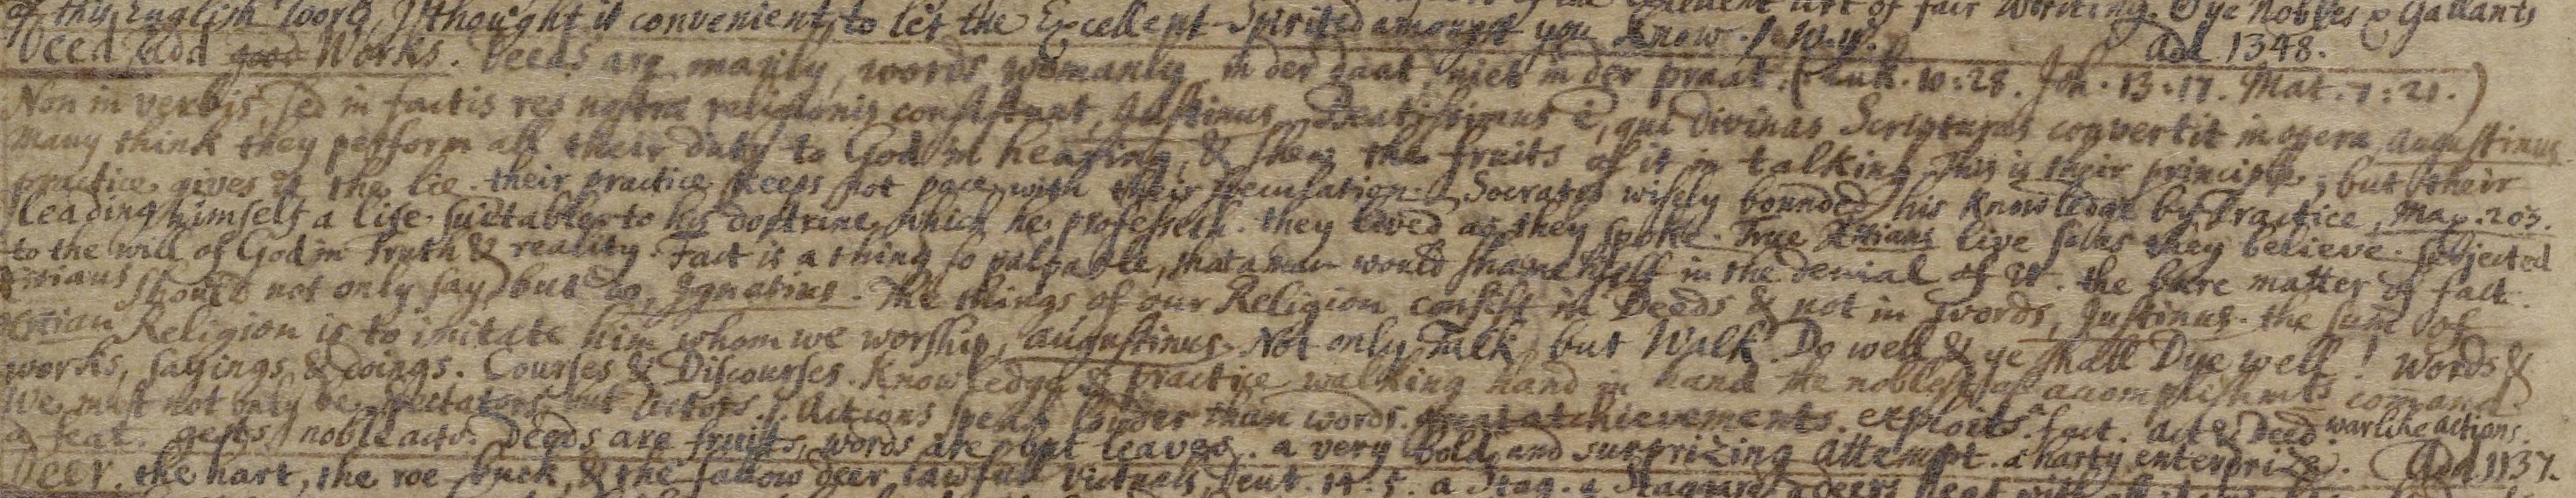 of thy English Word, I thought it convenient, to let the Excellent Spirited amongst you know. art of fair Writing. O ye Nobles & Gallants
Deed. Add good Works. Deeds are manly, words womanly in der daat, niet in der praat. (Luk. 10:28. Joh. 13:17. Mat. 7:21.) Add. 1348.
Non in verbis, sed in factis res nostræ religionis consistunt, Justinus. Beatissimus ē, qui Divinas Scripturas convertit in opera, Augustinus
Many think they perform all their duty to God in hearing, & shew the fruits of it in talking. This is their principle; but their
practice gives it the lie. their practice keeps not pace with their speculation. Socrates wisely bounded his knowledge by Practice, Map. 203.
leading himself a life suitable to his doctrine which he professeth. they lived as they spoke. True Xtians live so as they believe. subjected
to the will of God in Truth & reality. Fact is a thing so palpable, that a man would shame hself in the denial of it. the bare matter of fact.
Xtians should not only say, but do, Ignatius. The things of our Religion consist in Deeds & not in words, Justinus. the sum of
Xtian Religion is to imitate him whom we worship, Augustinus. Not only Talk, but Walk. Do well & ye shall Dye well! words &
works, sayings & doings. Courses & Discourses. Knowledge & practice walking hand in hand the noblest of accomplishmts comand.
We must not only be spectators but actors. Actions speak louder than words. great atchievements. exploits. fact. act & Deed. warlike actions.
a feat. gests / noble acts. Deeds are fruits, words are but leaves. a very Bold, and surprizing attempt. a harty enterprize. Add. 1137.
Deer. the hart, the roe buck, & the fallow deer lawful victuals, Deut. 14:5. a Stag. a